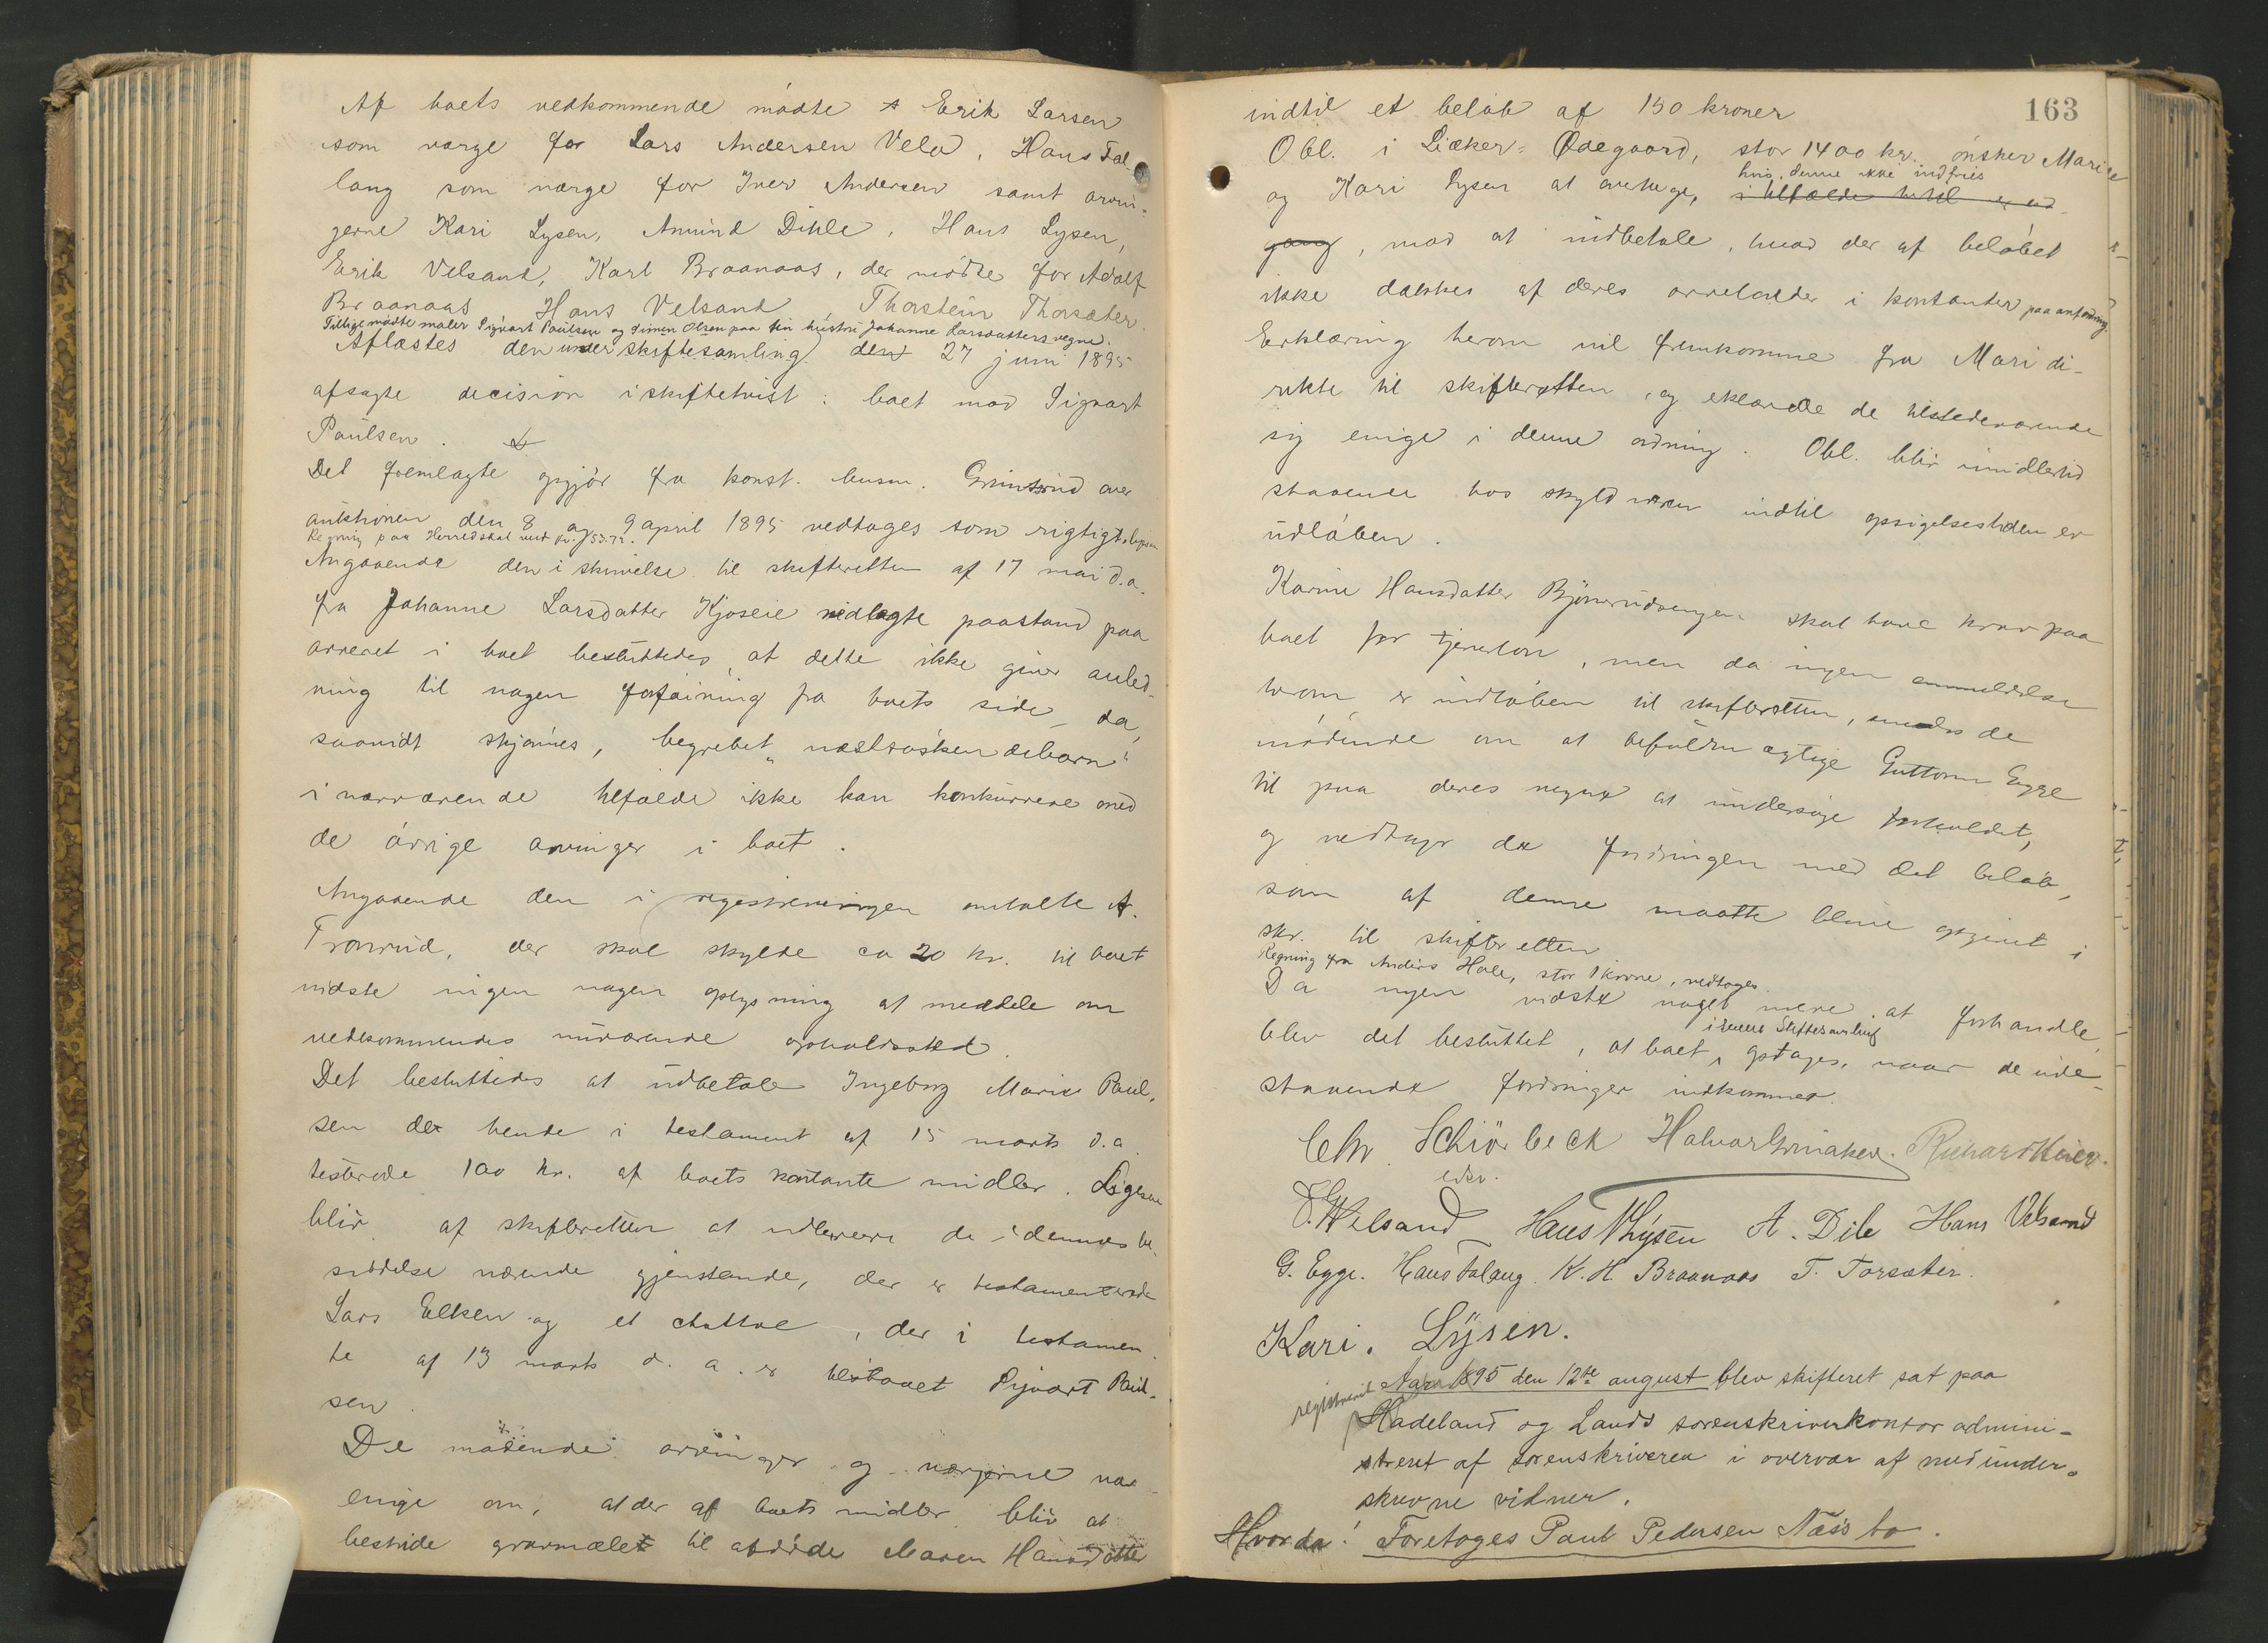 Af boets vedkommende mødte Erik Larsen
som værge for Lars Andersen Velo, Hans Fal-
lang som værge for Iver Andersen samt arvin-
gerne Kari Lysen, Amund Dihle, Hans Lysen,
Erik Velsand, Karl Braanaas, der mødte for Adolf
Braanaas Hans Velsand Thorstein Thorsæter.
Tillige mødte maler Sigvart Paulsen og Simen Olsen paa sin hustru Johanne Larsdatters vegne.
Aflæstes den under skiftesamling den 27 juni 1895
afsagte decision i skiftetvist: boet mod Sigvart
Paulsen.
Det fremlagte opgjør fra konst. lensm. Grinerud over
auktionen den 8 og 9 april 1895 vedtages som rigtigt.
Regning paa Herredskat
Angaaende den i skrivelse til skifteretten af 17 mai d.a.
fra Johanne Larsdatter Kjoseie nedlagte paastand paa
arveret i boet besluttedes, at dette ikke giver anled-
ning til nogen forføining fra boets side, da,
saavidt skjønnes, begrebet "næstsøskendebarn"
i nærværende tilfælde ikke kan konkurrere med
de øvrige arvinger i boet.
Angaaende den i registreringen omtalte A.
Tronrud, der skal skylde ca 20 kr. til boet
vidste ingen nogen oplysning at meddele om
vedkommendes nuværende opholdssted.
Det besluttedes at udbetale Ingeborg Marie Paul-
sen de hende i testament af 15 marts d.a.
testerede 100 kr. af boets kontante midler. Ligesaa
bliv af skifteretten at udlevere de i dennes be-
siddelse værende gjenstande, der er testamenterede
Lars Elken og et chattol, der i testamen-
te af 13 marts d. a. er tilstaaet Sigvart Paul-
sen.
De mødende arvinger og værgerne var
enige om, at der af boets midler bliv at
bestride gravmælet til afdøde Maren Hansdatter
163
indtil et beløb af 150 kroner
Obl. i Liæker-Ødegaard, stor 1400 kr. ønsker Marie
hvis denne ikke indfries
og Kari Lysen at overtage,
gang, mod at indbetale, hvad der af beløbet
ikke dækkes af deres arvelodder i kontanter paa anfordring.
Erklæring herom vil fremkomme fra Mari di-
rekte til skifteretten, og erklærede de tilstedeværende
sig enige i denne ordning. Obl. blir imidlertid
staaende hos skyldneren indtil opsigelsestiden er
udløben.
Karine Hansdatter Bjønerudsengen skal have krav paa
boet for tjenerløn, men da ingen anmeldelse
herom er indløben til skifteretten, enedes de
mødende om at befuldmægtige Guttorm Egge
til paa deres vegne at undersøge forholdet,
og vedtages da fordringen med det beløb,
som af denne maatte blive opgivet i
skr. til skifteretten
Regning fra Anders Hole, stor 1 krone, vedtoges.
Da ingen vidste noget mere at forhandle,
i senere Skiftesamling
blev det besluttet, at boet optages, naar de ude-
staaende fordringer indkommer.
Chr. Schiørbeck Halvor Grinaker. Richard
edsv.
E. Velsand Hans Lysen A. Dile Hans Velsand
G. Egge. Hans Falang. K. H. Braanaas T. Torsæter.
Kari. Lysen.
registreret
Aar 1895 den 12te august blev skifteret sat paa
Hadeland og Lands sorenskriverkontor admini-
streret af sorenskriveren i overvær af medunder-
skrevne vidner.
Hvorda: Foretoges Paul Pedersen Næss bo.